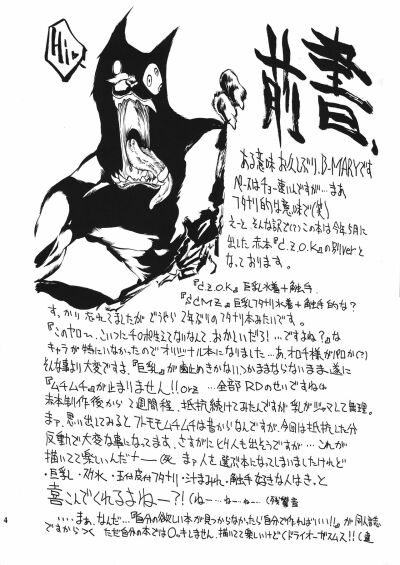 Hi♥
前書、
ある意味お久しぶり、B-MARYです
ペースはチョー速いですが…まぁ
フタナリ的な意味で(笑)
えーと、そんな訳で(?)この本は今年5月に
出した赤本『C.Z.O.K』の別verと
なっております。
『C.Z.O.K』巨乳水着+触手、
『♂CMZ』巨乳フタナリ水着+触手的な?
すっかり忘れてましたがどうやら2年ぶりのフタナリ本みたいです。
『このヤロー、こいつにチ○ポ生えてないなんて、おかしいだろ!…ですよね?』な
キャラが特にいなかったのでオリジナル本になりました…あ オロチ様がパロか(?)
そんな事より大変です、『巨乳』が歯止めきかないっつかまるまいまま…遂に
『ムチムチ』が止まりません!!orz …全部RDのせいですね
赤本制作後から2週間程、抵抗続けてみたんですが、乳がジャマして無理。
まァ、思い出してみるとフトモモムチムチは昔からなんですが、今回は抵抗した分
反動で大変な事になってます、さすがにヒく人も出そうですが…これが
描いてて楽しいんだナー (死 まァ人を選ぶ本になってしまいましたけれど
・巨乳・スク水・玉付皮付フタナリ・汁まみれ・触手好きな人はきっと
喜こんでくれるよねー?!(ねー…ねー…ねー…(残響音
・・・・まぁ、なんだ…『自分の欲しい本が見つからなかったら自分で作ればいい!!』が同人誌
ですから>< ただ自分の本では○ッキしません、描いてて楽しいけど(ドライオーガズムス!!(違
4